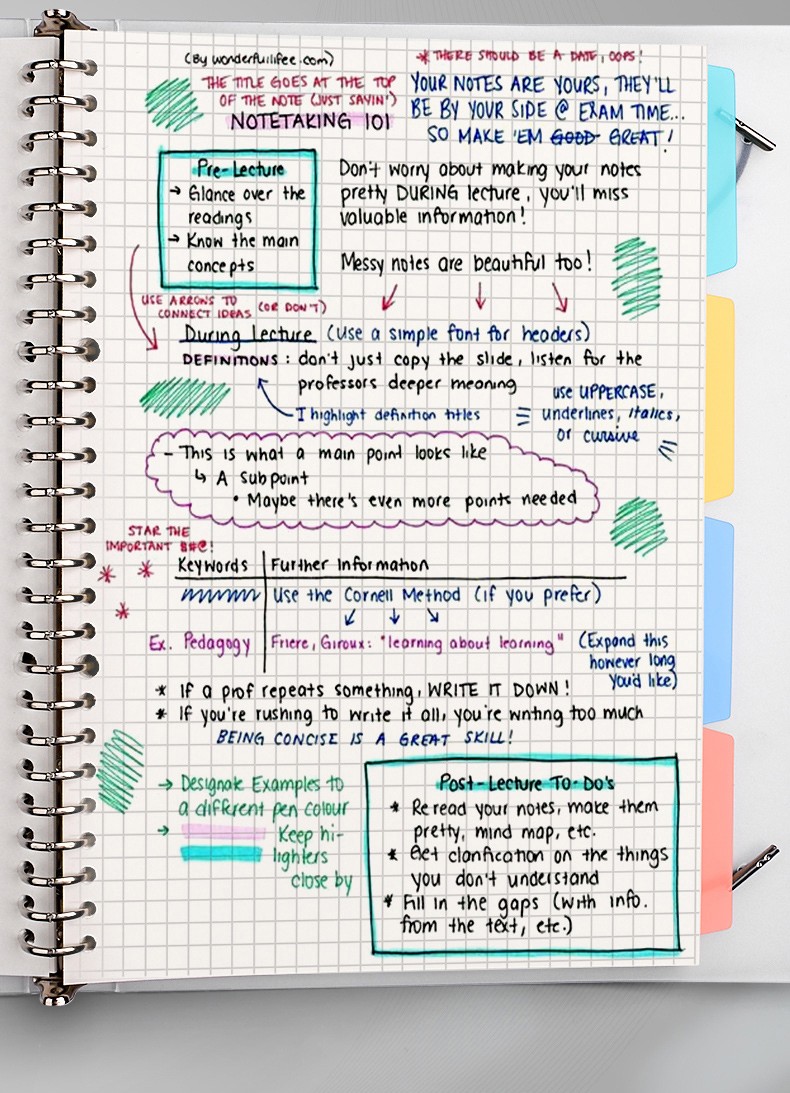 (By wonderfuilifee.com)
* THERE SHOULD BE A DATE, OOPS!
THE TITLE GOES AT THE TOP
OF THE NOTE (JUST SAYIN')
NOTETAKING 101
YOUR NOTES ARE YOURS, THEY'LL
BE BY YOUR SIDE @ EXAM TIME...
SO MAKE 'EM GOOD GREAT!
Pre-Lecture
→ Glance over the
readings
→ Know the main
concepts
Don't worry about making your notes
pretty DURING lecture, you'll miss
valuable information!
Messy notes are beautiful too!
USE ARROWS TO
CONNECT IDEAS (OR DON'T)
During Lecture (Use a simple font for headers)
DEFINITIONS: don't just copy the slide, listen for the
professors deeper meaning
I highlight definition titles
use UPPERCASE,
underlines, italics,
or cursive
- This is what a main point looks like
↳ A subpoint
• Maybe there's even more points needed
STAR THE
IMPORTANT $#@!
Keywords | Further Information
Use the Cornell Method (if you prefer)
Ex. Pedagogy | Friere, Giroux: "learning about learning"
(Expand this
however long
you'd like)
* If a prof repeats something, WRITE IT DOWN!
* If you're rushing to write it all, you're writing too much
BEING CONCISE IS A GREAT SKILL!
→ Designate Examples to
a different pen colour
→ Keep hi-
lighters
close by
Post-Lecture To-Do's
* Reread your notes, make them
pretty, mind map, etc.
* Get clarification on the things
you don't understand
* Fill in the gaps (with info.
from the text, etc.)